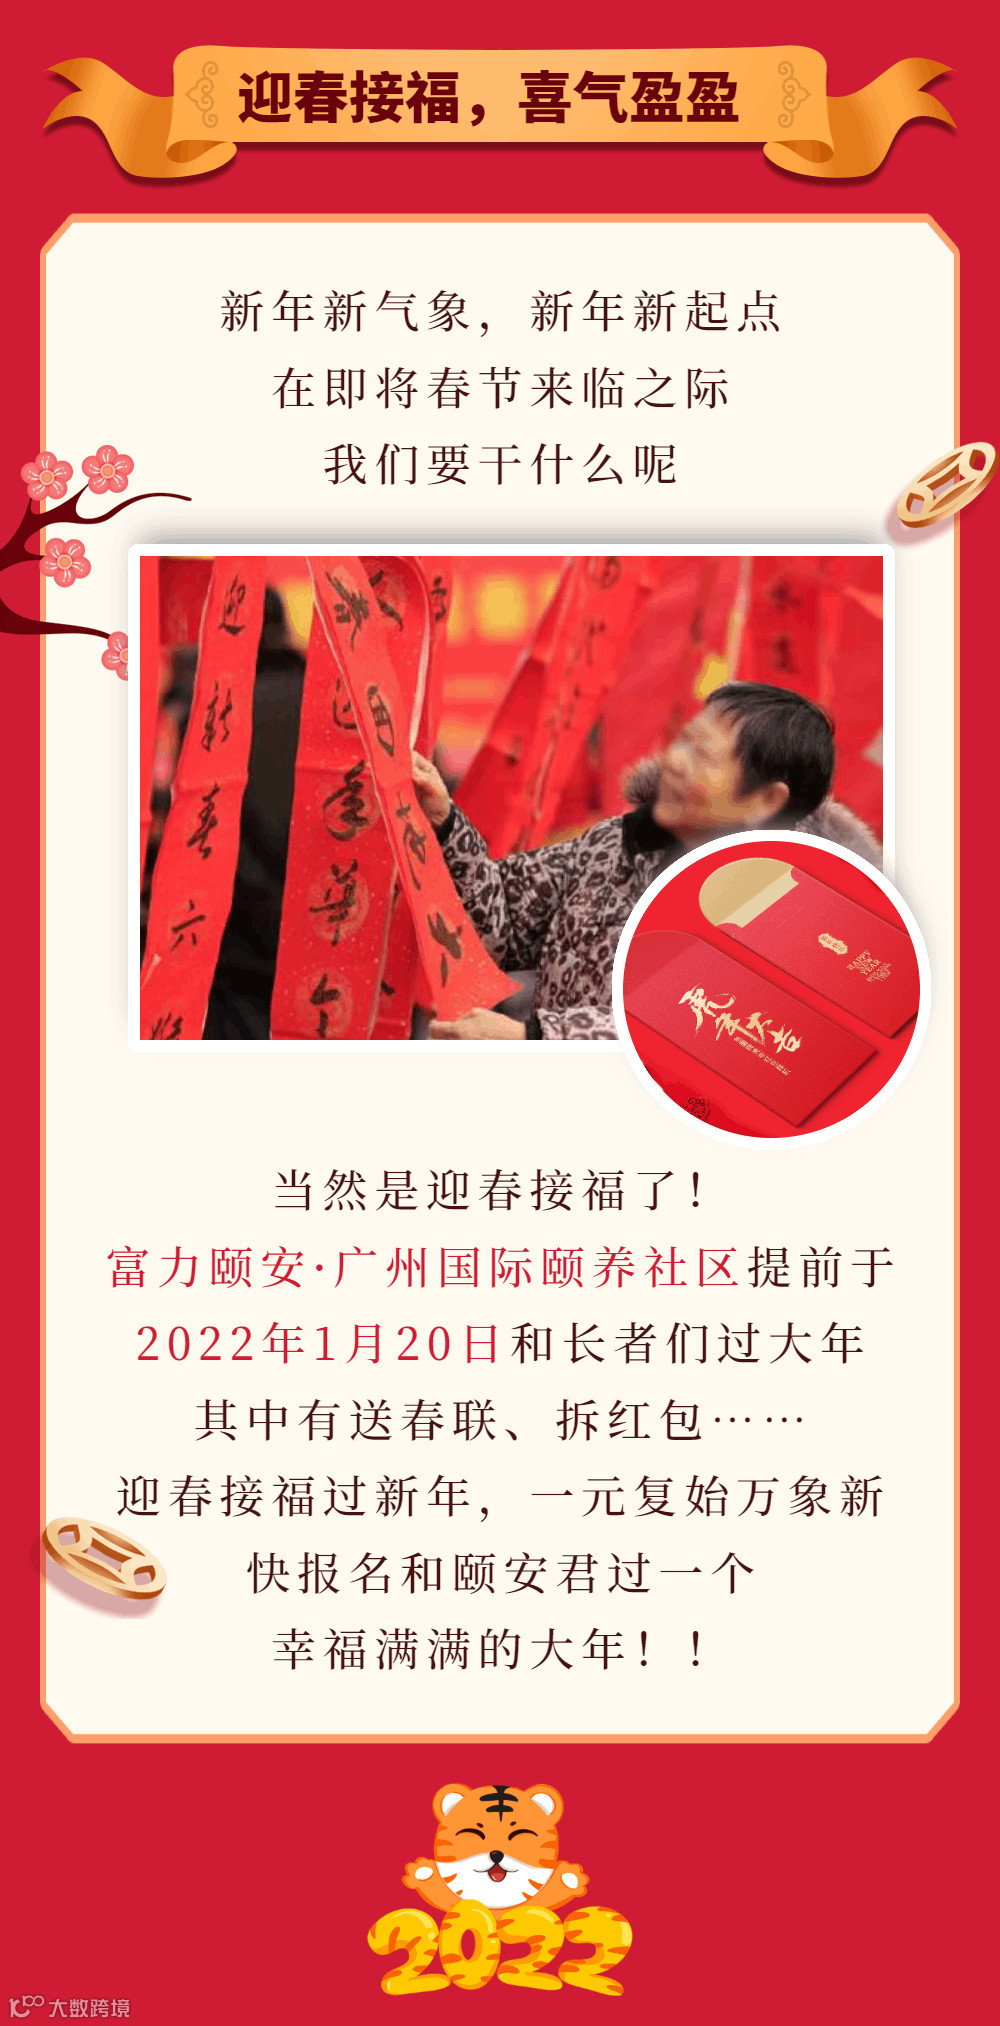 迎春接福，喜气盈盈
新年新气象，新年新起点
在即将春节来临之际
我们要干什么呢
迎新春六
迎年华
虎年大吉
HAPPY
YEAR
当然是迎春接福了！
富力颐安·广州国际颐养社区提前于
2022年1月20日和长者们过大年
其中有送春联、拆红包……
迎春接福过新年，一元复始万象新
快报名和颐安君过一个
幸福满满的大年！！
2022
大数跨境